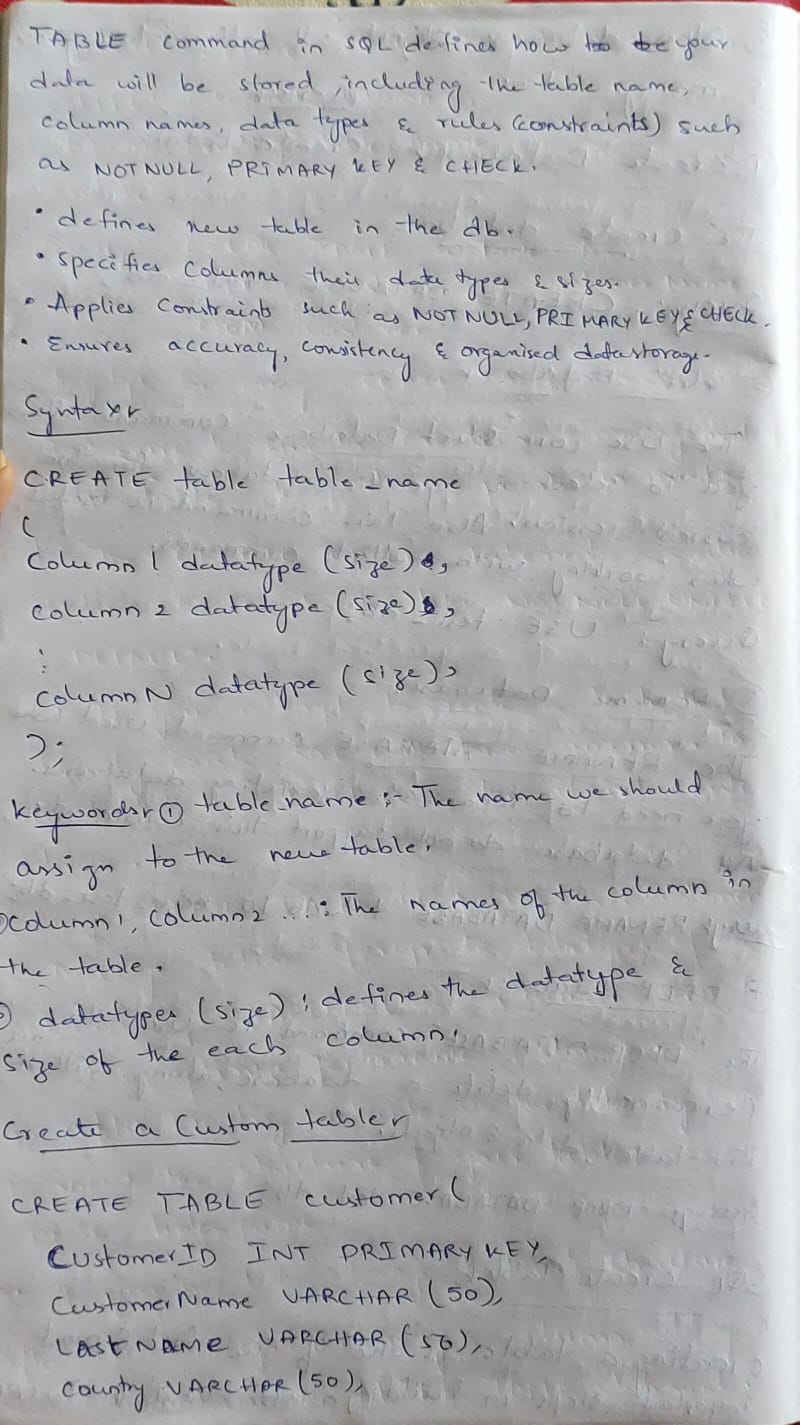 TABLE command in SQL defines how to be your
data will be stored, including the table name,
column names, data types & rules (constraints) such
as NOT NULL, PRIMARY KEY & CHECK.
• defines new table in the db.
• Specifies Columns their data types & sizes.
• Applies Constraints such as NOT NULL, PRIMARY KEY & CHECK.
• Ensures accuracy, consistency & organised data storage.
Syntax
CREATE table table_name
(
Column 1 datatype (size),
column 2 datatype (size),
:
column N datatype (size),
);
Keywords ① table name :- The name we should
assign to the new table.
column 1, column 2 ... : The names of the column in
the table.
datatypes (size) : defines the datatype &
size of the each column.
Create a Custom table
CREATE TABLE customer (
CustomerID INT PRIMARY KEY,
CustomerName VARCHAR (50),
LastName VARCHAR (50),
Country VARCHAR (50),